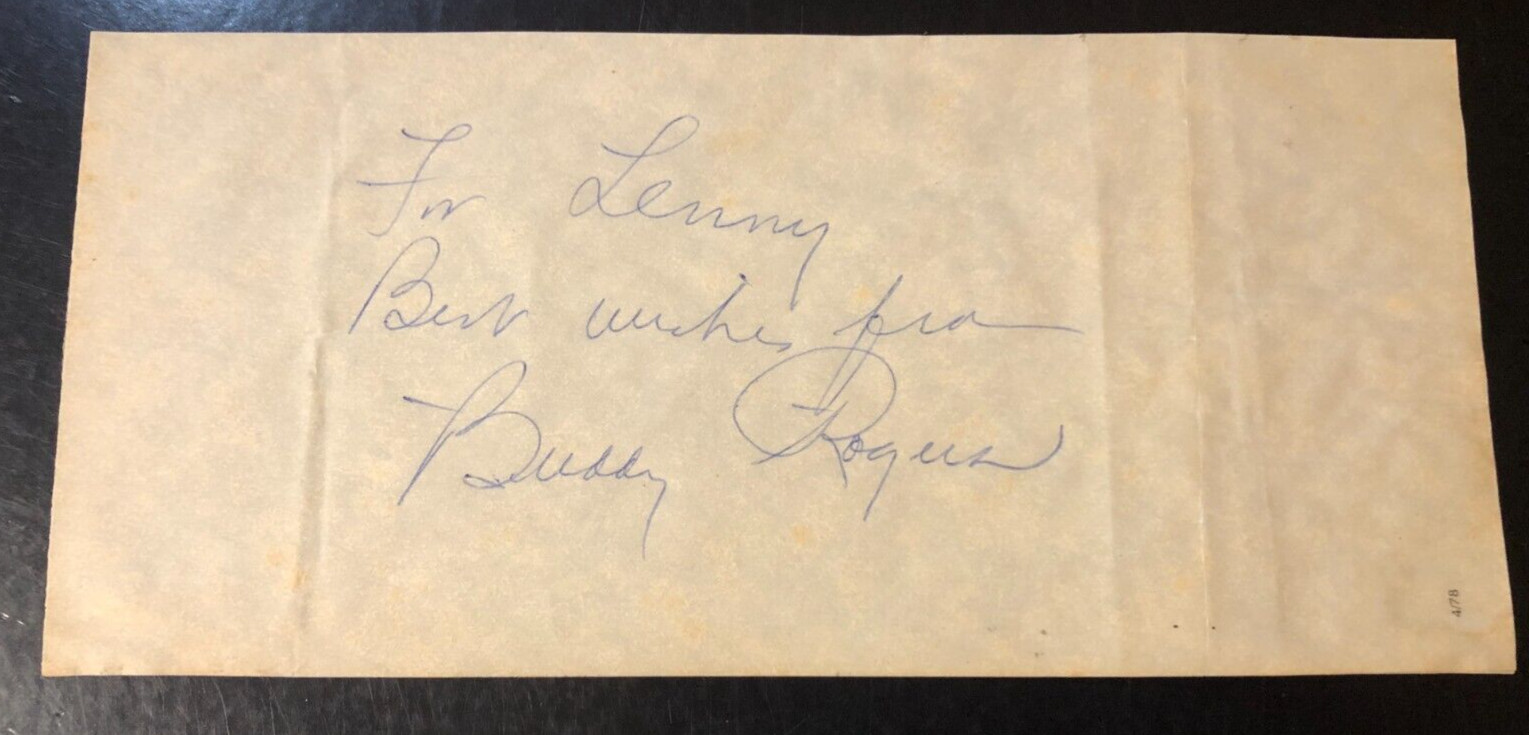 For Lenny
Best wishes from
Buddy Rogers
4/78